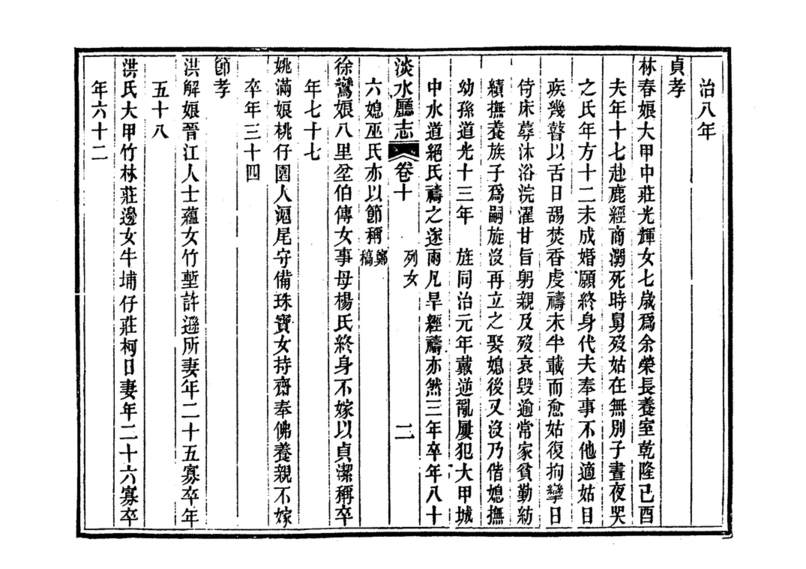 治八年
貞孝
林春娘大甲中莊光輝女七歲爲余榮長養室乾隆己酉
夫年十七赴鹿經商溺死時舅歿姑在無別子晝夜哭
之氏年方十二未成婚願終身代夫奉事不他適姑目
疾幾瞽以舌日舔焚香虔禱未半載而愈姑復拘攣日
侍床蓐沐浴浣濯甘旨躬親及歿哀毀逾常家貧勤紡
績撫養族子爲嗣旋沒再立之娶媳後又沒乃偕媳撫
幼孫道光十三年 旌同治元年戴逆亂屢犯大甲城
中水道絕氏禱之遂雨凡旱經禱亦然三年卒年八十
六媳巫氏亦以節稱 鄭稿
淡水廳志 卷十 列女 二
徐鸞娘八里坌伯傳女事母楊氏終身不嫁以貞潔稱卒
年七十七
姚滿娘桃仔園人滬尾守備珠寶女持齋奉佛養親不嫁
卒年三十四
節孝
洪解娘晉江人士蘊女竹塹許遜所妻年二十五寡卒年
五十八
洪氏大甲竹林莊邊女牛埔仔莊柯日妻年二十六寡卒
年六十二